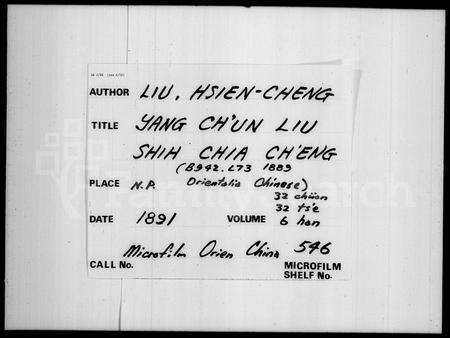 AUTHOR LIU, HSIEN-CHENG
TITLE YANG CH'UN LIU
SHIH CHIA CH'ENG
(B942.L73 1889
PLACE N.P. Orientalia Chinese)
32 chüan
32 ts'e
DATE 1891 VOLUME 6 han
Microfilm Orien China 546
CALL No. MICROFILM
SHELF No.